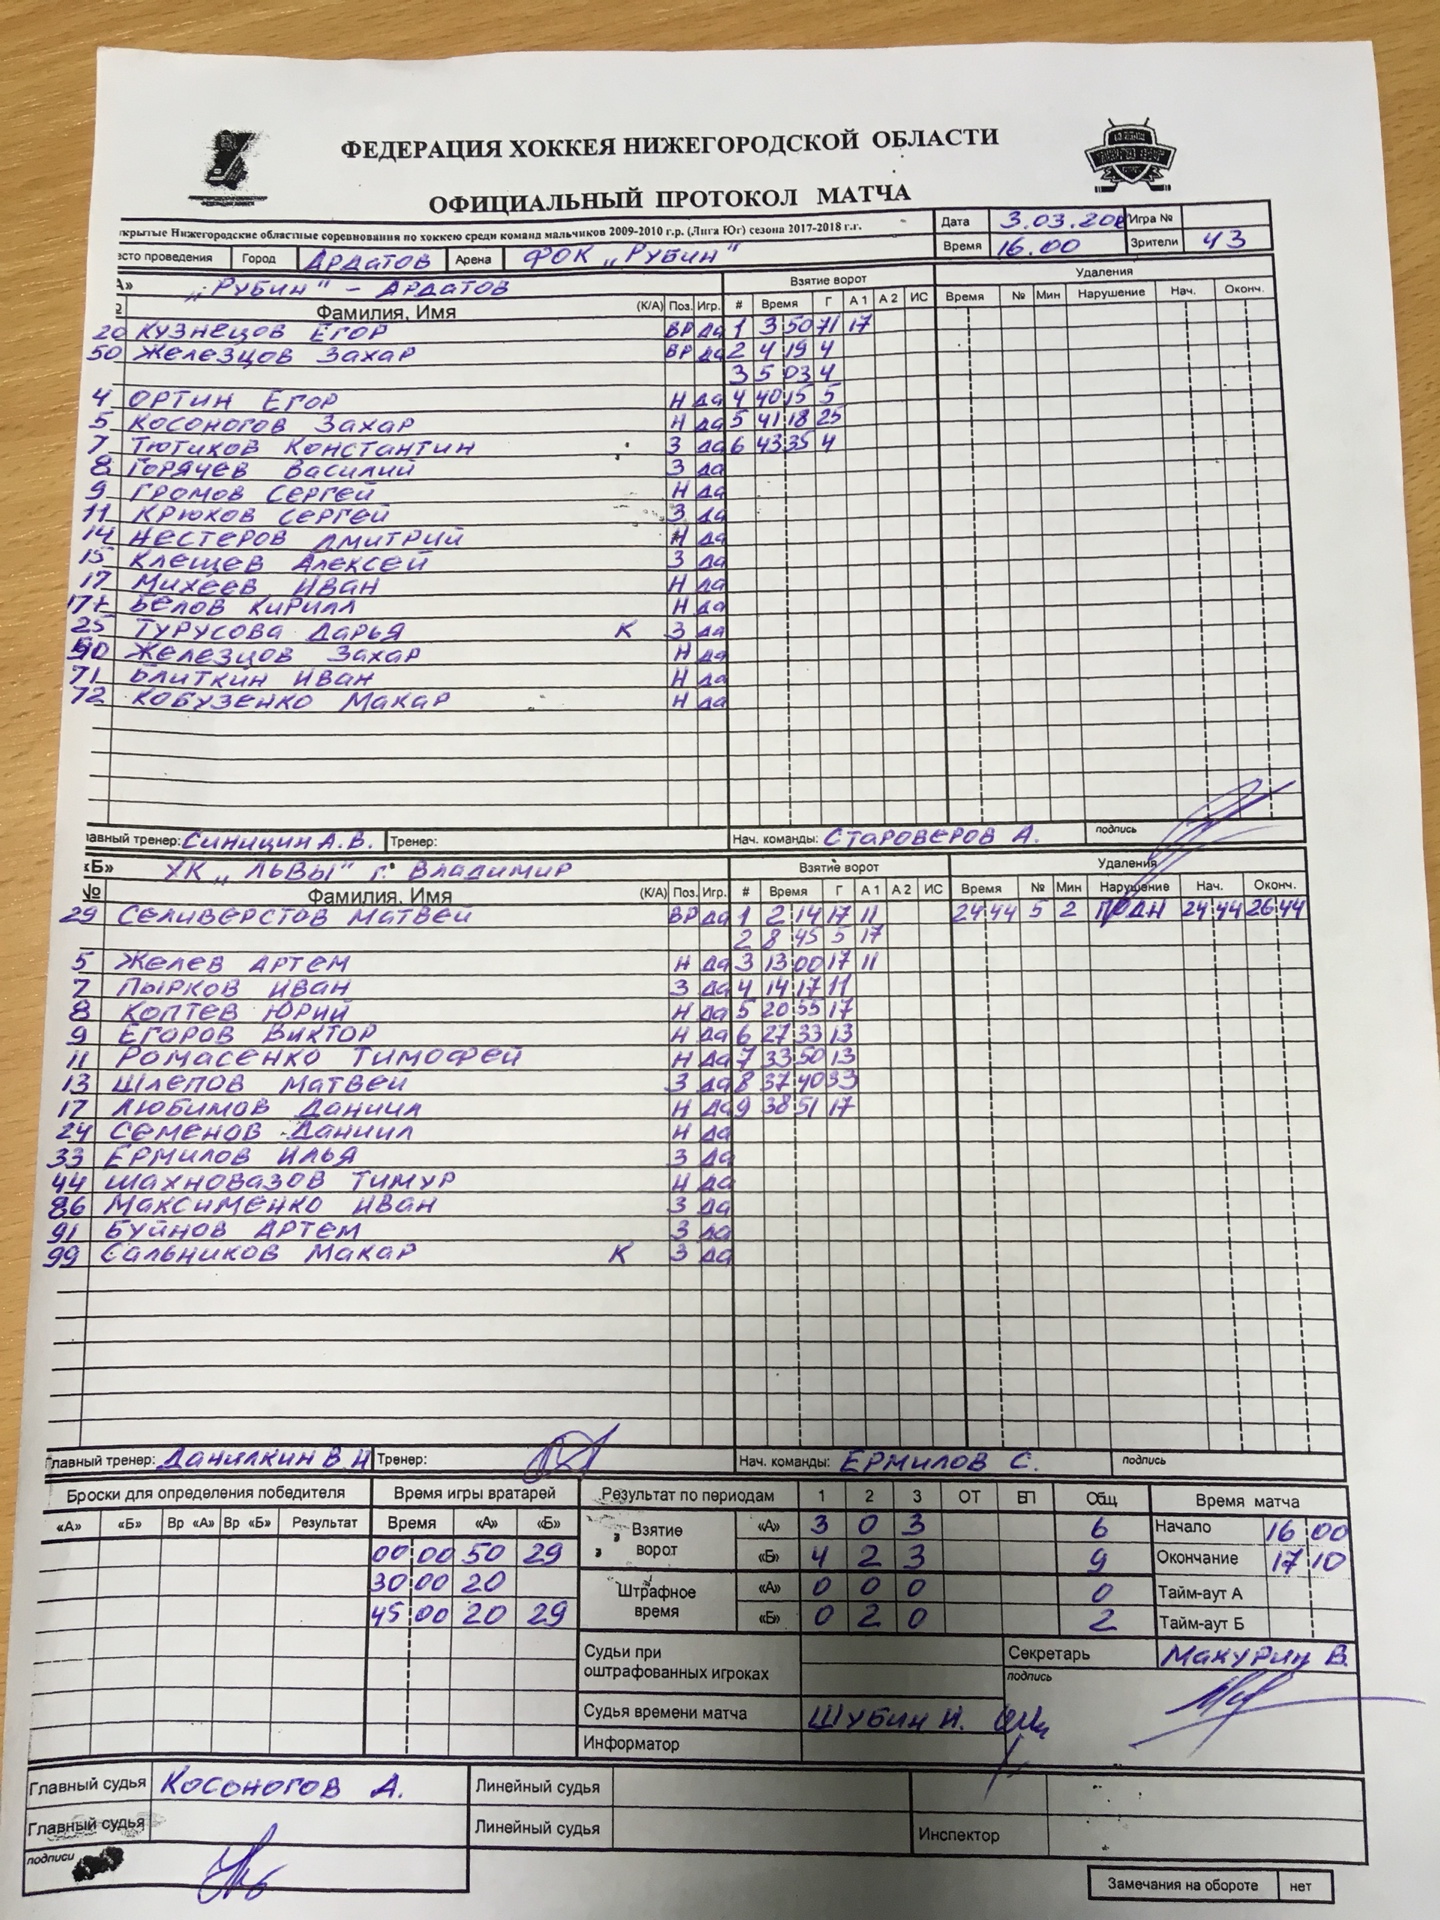 ФЕДЕРАЦИЯ ХОККЕЯ НИЖЕГОРОДСКОЙ ОБЛАСТИ
ОФИЦИАЛЬНЫЙ ПРОТОКОЛ МАТЧА
ткрытые Нижегородские областные соревнования по хоккею среди команд мальчиков 2009-2010 г.р. (Лига Юг) сезона 2017-2018 г.г. Дата 3.03.20 Игра №
есто проведения Город АРДАТОВ Арена ФОК „РУБИН" Время 16.00 Зрители 43
А» „РУБИН" - АРДАТОВ Взятие ворот Удаления
Фамилия, Имя (К/А) Поз. Игр. # Время Г А 1 А 2 ИС Время № Мин Нарушение Нач. Оконч.
20 КУЗНЕЦОВ ЕГОР ВР да 1 3 50 71 17
50 ЖЕЛЕЗЦОВ ЗАХАР ВР да 2 4 19 4
3 5 03 4
4 ОРТИН ЕГОР Н да 4 40 15 5
5 КОСОНОГОВ ЗАХАР Н да 5 41 18 25
7 ТЮТИКОВ КОНСТАНТИН З да 6 43 35 4
8 ГОРЯЧЕВ ВАСИЛИЙ З да
9 ГРОМОВ СЕРГЕЙ Н да
11 КРЮКОВ СЕРГЕЙ З да
14 НЕСТЕРОВ ДМИТРИЙ Н да
15 КЛЕЩЕВ АЛЕКСЕЙ З да
17 МИХЕЕВ ИВАН Н да
177 БЕЛОВ КИРИЛЛ Н да
25 ТУРУСОВА ДАРЬЯ К З да
90 ЖЕЛЕЗЦОВ ЗАХАР Н да
71 БЛИТКИН ИВАН Н да
72 КОБУЗЕНКО МАКАР Н да
лавный тренер: СИНИЦИН А.В. Тренер: Нач. команды: СТАРОВЕРОВ А. подпись
«Б» ХК „ЛЬВЫ" г. ВЛАДИМИР Взятие ворот Удаления
№ Фамилия, Имя (К/А) Поз. Игр. # Время Г А 1 А 2 ИС Время № Мин Нарушение Нач. Оконч.
29 СЕЛИВЕРСТОВ МАТВЕЙ ВР да 1 2 14 17 11 24 44 5 2 ПОДН 24 44 26 44
2 8 45 5 17
5 ЖЕЛЕВ АРТЕМ Н да 3 13 00 17 11
7 ПЫРКОВ ИВАН З да 4 14 17 11
8 КОПТЕВ ЮРИЙ Н да 5 20 55 17
9 ЕГОРОВ ВИКТОР Н да 6 27 33 13
11 РОМАСЕНКО ТИМОФЕЙ Н да 7 33 50 13
13 ШЛЕПОВ МАТВЕЙ З да 8 37 40 33
17 ЛЮБИМОВ ДАНИИЛ Н да 9 38 51 17
24 СЕМЕНОВ ДАНИИЛ Н да
33 ЕРМИЛОВ ИЛЬЯ З да
44 ШАХНОВАЗОВ ТИМУР Н да
86 МАКСИМЕНКО ИВАН З да
91 БУЙНОВ АРТЕМ З да
99 САЛЬНИКОВ МАКАР К З да
Главный тренер: ДАНИЛКИН В.Н Тренер: Нач. команды: ЕРМИЛОВ С. подпись
Броски для определения победителя Время игры вратарей Результат по периодам 1 2 3 ОТ ВП Общ Время матча
«А» «Б» Вр «А» Вр «Б» Результат Время «А» «Б» Взятие ворот «А» 3 0 3 6 Начало 16 00
00 00 50 29 «Б» 4 2 3 9 Окончание 17 10
30 00 20 Штрафное время «А» 0 0 0 0 Тайм-аут А
45 00 20 29 «Б» 0 2 0 2 Тайм-аут Б
Судьи при оштрафованных игроках Секретарь МАКУРИН В.
подпись
Судья времени матча ШУБИН И.
Информатор
Главный судья КОСОНОГОВ А. Линейный судья
Главный судья Линейный судья Инспектор
подписи
Замечания на обороте нет